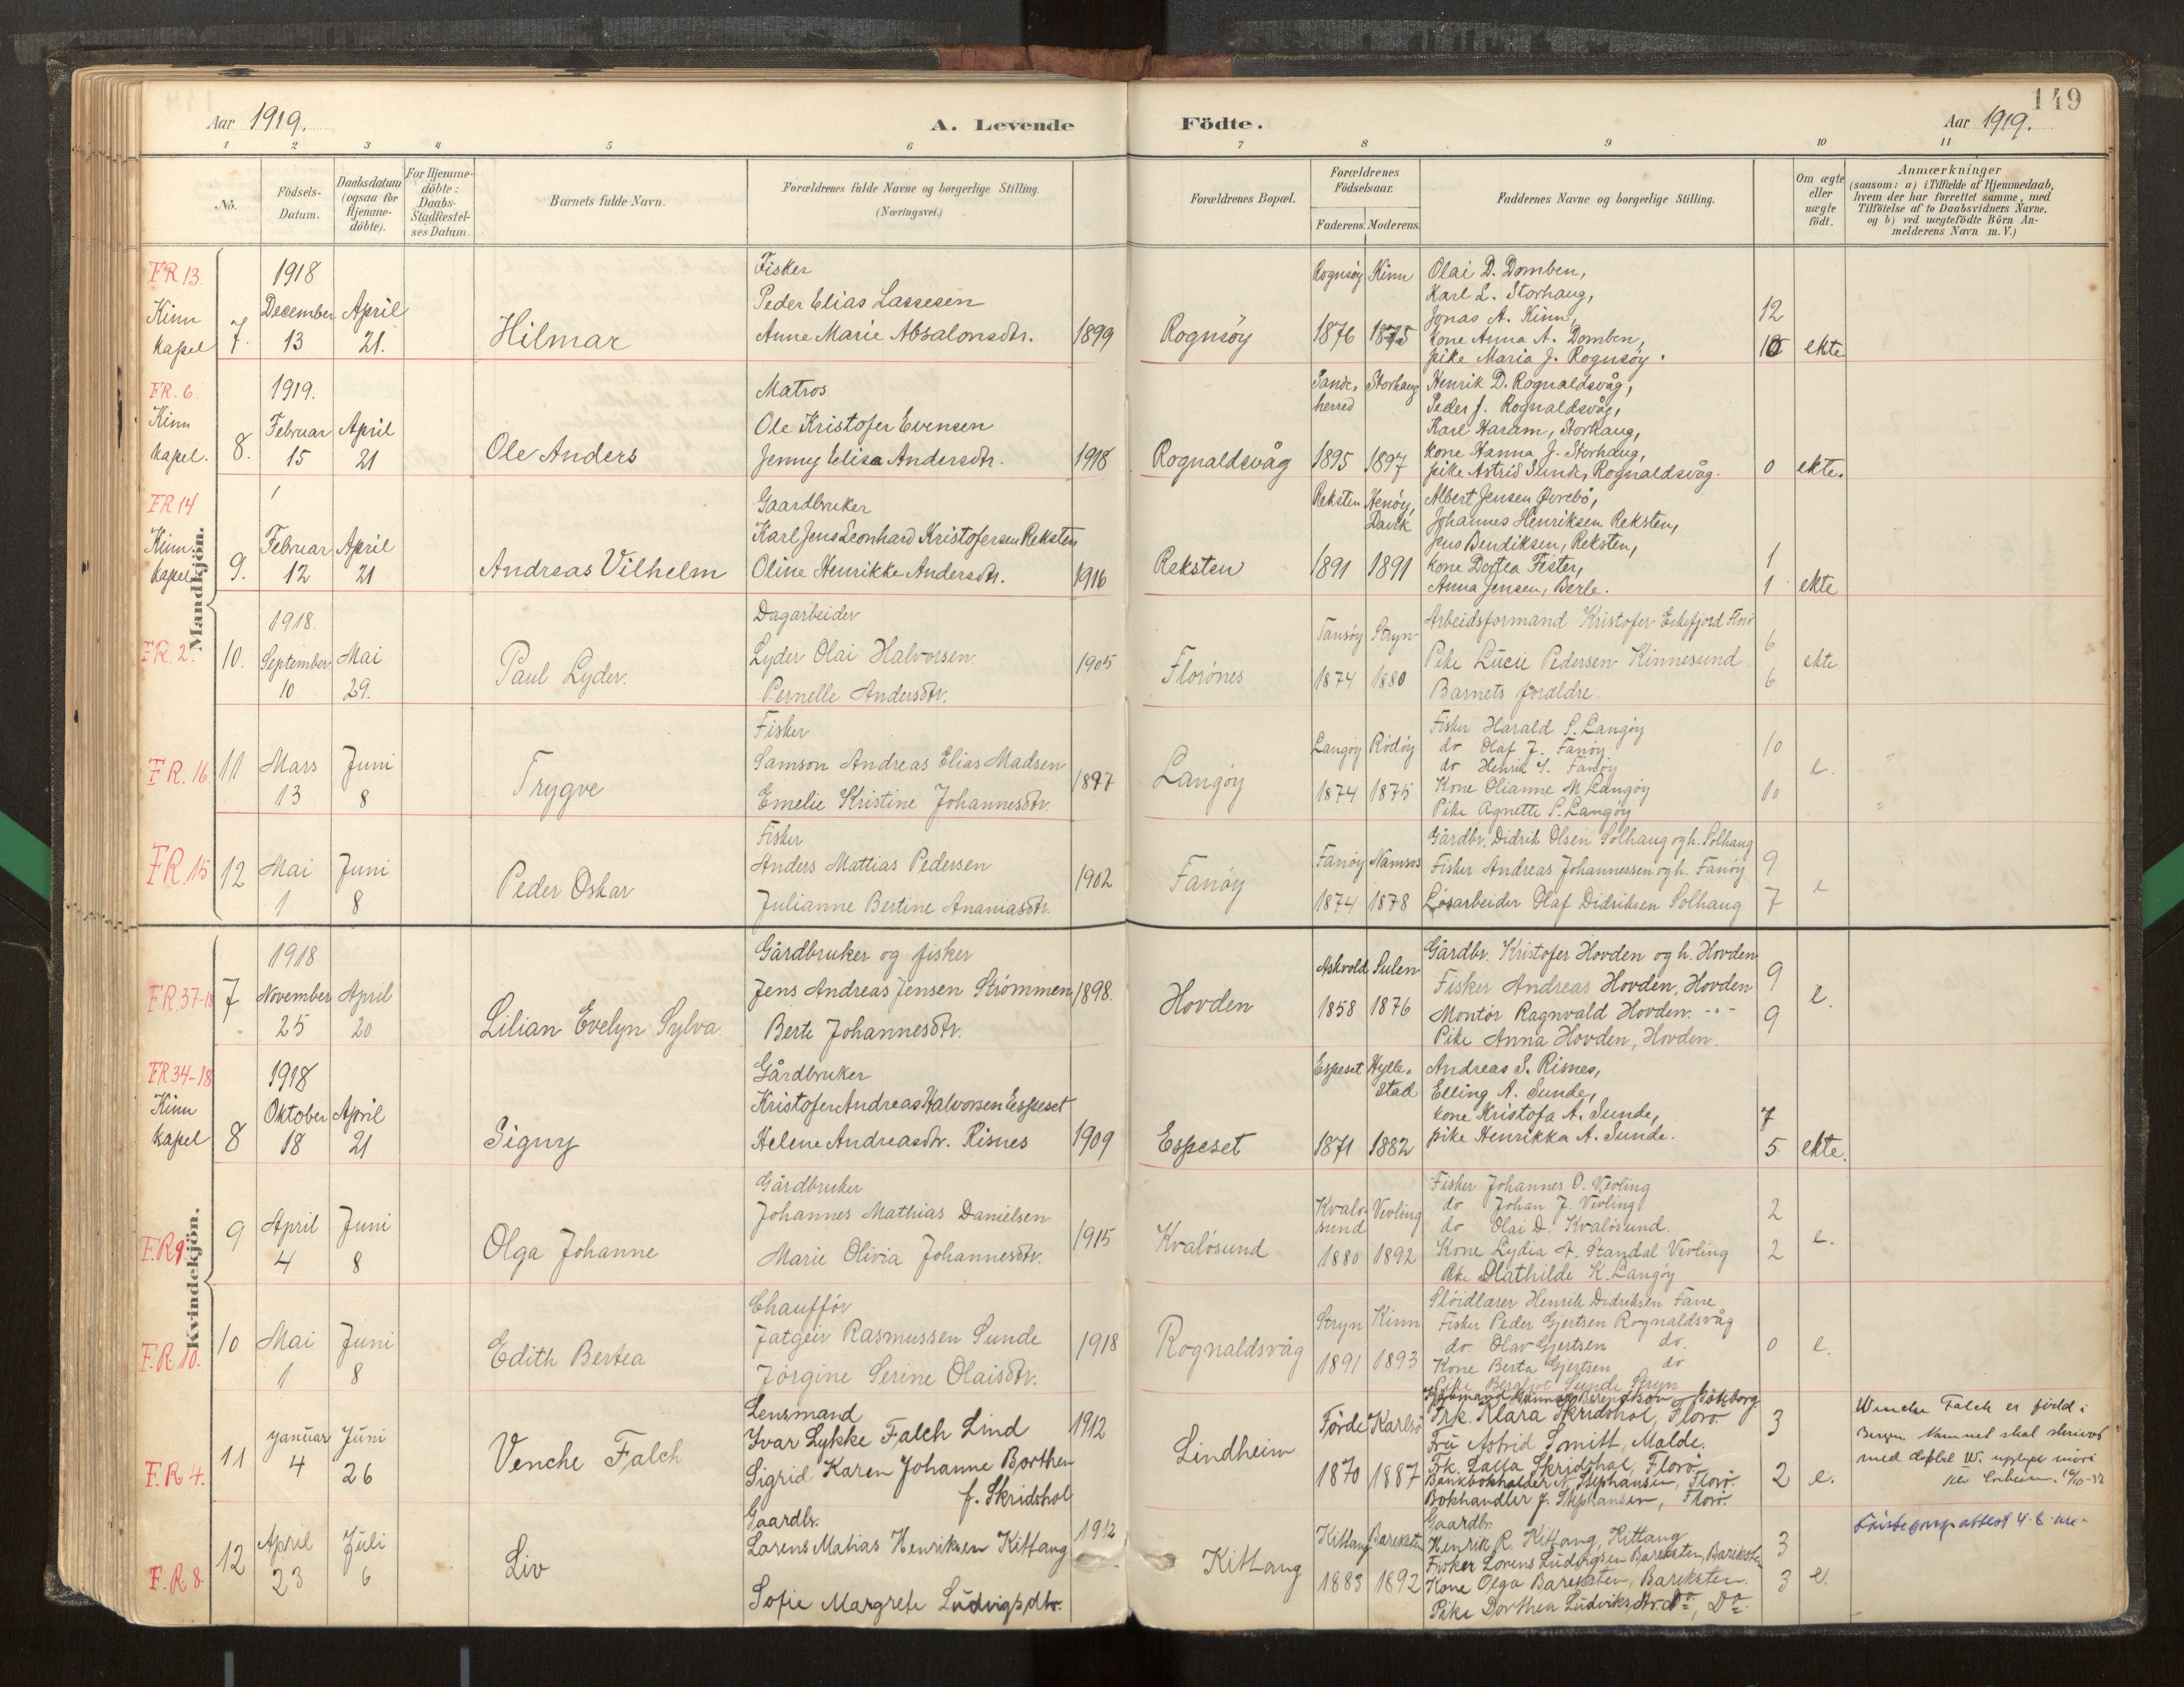 149
Aar 1919.
A. Levende
Födte.
Aar 1919.
1 2 3 4 5 6 7 8 9 10 11
No.
Födsels-Datum.
Daabsdatum (ogsaa for Hjemmedöbte).
For Hjemmedöbte: Daabs-Stadfæstelses Datum.
Barnets fulde Navn.
Forældrenes fulde Navne og borgerlige Stilling. (Næringsvei.)
Forældrenes Bopæl.
Forældrenes Födselsaar.
Faderens. Moderens.
Faddernes Navne og borgerlige Stilling.
Om ægte eller uægte födt.
Anmærkninger
(saasom: a) i Tilfælde af Hjemmedaab, hvem der har forrettet samme, med Tilföielse af to Daabsvidners Navne, og b) ved uægtefödte Börn Anmelderens Navn m. V.)
Mandkjön.
FR 13.
Kinn kapel
7.
1918 December 13
April 21.
Hilmar
Fisker
Peder Elias Lassesen
Anne Marie Absalonsdtr.
1899
Rognsöy
Rognsöy 1876
Kinn 1875
Olai D. Domben,
Karl L. Storhaug,
Jonas A. Kinn,
Kone Anna A. Domben,
pike Maria J. Rognsöy.
12
10
ekte.
FR. 6.
Kinn kapel.
8.
1919. Februar 15
April 21
Ole Anders
Matros
Ole Kristofer Evensen
Jenny Elisa Andersdtr.
1918
Rognaldsvåg
Sandeherred 1895
Storhaug 1897
Henrik D. Rognaldsvåg,
Peder J. Rognaldsvåg,
Karl Haram, Storhaug,
Kone Hanna J. Storhaug,
pike Astrid Sunde, Rognaldsvåg.
0
ekte.
FR 14
Kinn kapel
9.
Februar 12
April 21
Andreas Vilhelm
Gaardbruker
Karl Jens Leonhard Kristofersen Reksten
Oline Henrikke Andersdtr.
1916
Reksten
Reksten 1891
1891
Albert JensenÖvrebö,
Johannes Henriksen Reksten,
Jens Bendiksen, Reksten,
Kone Dortea Fester,
Anna Jensen, Berle.
1
1
ekte
FR. 2.
10.
1918. September 10
Mai 29.
Paul Lyder.
Dagarbeider
Lyder Olai Halvorsen.
Pernelle Andersdtr.
1905
Florönes
Tansöy 1874
Stryn 1880
Arbeidsformand Kristofer Eikefjord Florö
Pike Lucie Pedersen Kinnesund
Barnets forældre.
6
6
ekte.
FR. 16.
11
Mars 13
Juni 8
Trygve
Fisker
Samson Andreas Elias Madsen
Emelie Kristine Johannesdtr.
1897
Langöy
Langöy 1874
Rödöy 1875
Fisker Harald S. Langöy
do Olaf J. Fanöy
do Henrik S. Fanöy
Kone Olianne M. Langöy
Pike Agnette S. Langöy
10
10
e.
FR. 15
12
Mai 1
Juni 8
Peder Oskar
Fisker
Anders Mattias Pedersen
Julianne Bertine Ananiasdtr.
1902
Fanöy
Fanöy 1874
Namsos 1878
Gårdbr. Didrik Olsen Solhaug og h. Solhaug
Fisker Andreas Johannessen og h. Fanöy
Lösarbeider Olaf Didriksen Solhaug
9
7
e
Kvindekjön.
FR 37-18
7
1918 November 25
April 20
Lilian Evelyn Sylva
Gårdbruker og fisker
Jens Andreas Jensen Strömmen
Berte Johannesdtr.
1898.
Hovden
Askvold 1858
Sulen 1876
Gårdbr. Kristofer Hovden og h. Hovden
Fisker Andreas Hovden, Hovden
Montör Ragnvald Hovden. -"-
Pike Anna Hovden, Hovden.
9
9
e.
FR 34-18
Kinn kapel
8
1918 Oktober 18
April 21
Signy
Gårdbruker
Kristofer Andreas Halvorsen Espeset
Helene Andreasdtr. Risnes
1909
Espeset
Espeset 1871
Hyllestad 1882
Andreas S. Risnes,
Elling A. Sunde,
kone Kristofa A. Sunde,
pike Henrikka A. Sunde.
7
5
ekte.
F.R 9.
9
April 4
Juni 8
Olga Johanne
Gårdbruker
Johannes Mathias Danielsen
Marie Olivia Johannesdtr.
1915
Kvalösund
Kvalösund 1880
Vevling 1892
Fisker Johannes O. Vevling
do Johan J. Vevling
do Olai D. Kvalösund.
Kone Lydia A. Standal Vevling
Pike Mathilde K. Langöy
2
2
e.
F.R 10.
10
Mai 1
Juni 8
Edith Bertea
Chaufför
Jatgeir Rasmussen Sunde
Jörgine Serine Olaisdtr.
1918
Rognaldsvåg
Stryn 1891
Kinn 1893
Slöidlærer Henrik Didriksen Fane
Fisker Peder Gjertsen Rognaldsvåg
do Olav Gjertsen do.
Kone Berta Gjertsen do
Pike Bergljot Sunde Stryn
0
e.
F.R 4.
11
Januar 4
Juni 26
Venche Falch
Lensmand
Ivar Lykke Falch Lind
Sigrid Karen Johanne Borthen
f. Skridshol
1912
Lindheim
Förde 1870
Karlsö 1887
Frk. Klara Skridshol, Florö
Fru Astrid Smitt, Molde.
Frk. Lalla Skridshol, Florö
Bankbokholder A. Stephansen, Florö.
Bokhandler J. Stephansen, Florö.
3
2
e.
Wenche Falch er född i
Bergen. Navnet skal skrives
med
F.R 8
12
April 23
Juli 6
Liv
Gaardbr.
Lorens Matias Henriksen Kittang
Sofie Margrete Ludvigsdtr.
1912
Kittang
Kittang 1883
Bareksten 1892
Gaardbr.
Henrik R. Kittang, Kittang
Fisker Lorens Ludvigsen Bareksten, Bareksten
Kone Olga Bareksten, Bareksten.
Pike Dorthea Ludviksdtr. Do, Do.
3
3
e.